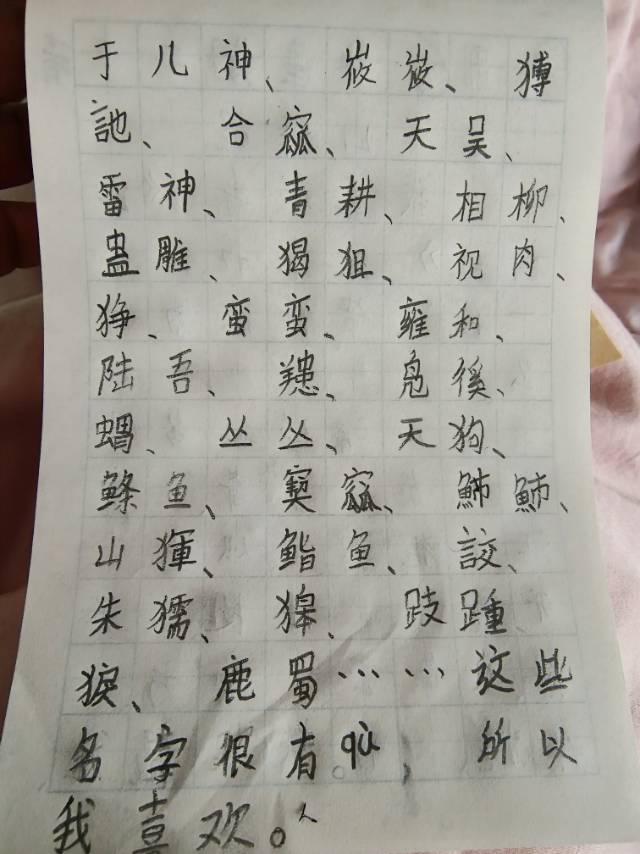 于儿神、峳峳、猼
訑、合窳、天吴、
雷神、青耕、相柳、
蛊雕、猲狙、视肉、
狰、蛮蛮、雍和、
陆吾、䍺、凫徯、
蝟、丛丛、天狗、
鲦鱼、窫窳、䰽䰽、
山𤟤、鮨鱼、詨、
朱獳、獋、跂踵
、鹿蜀……这些
名字很有。qù，所以
我喜欢。